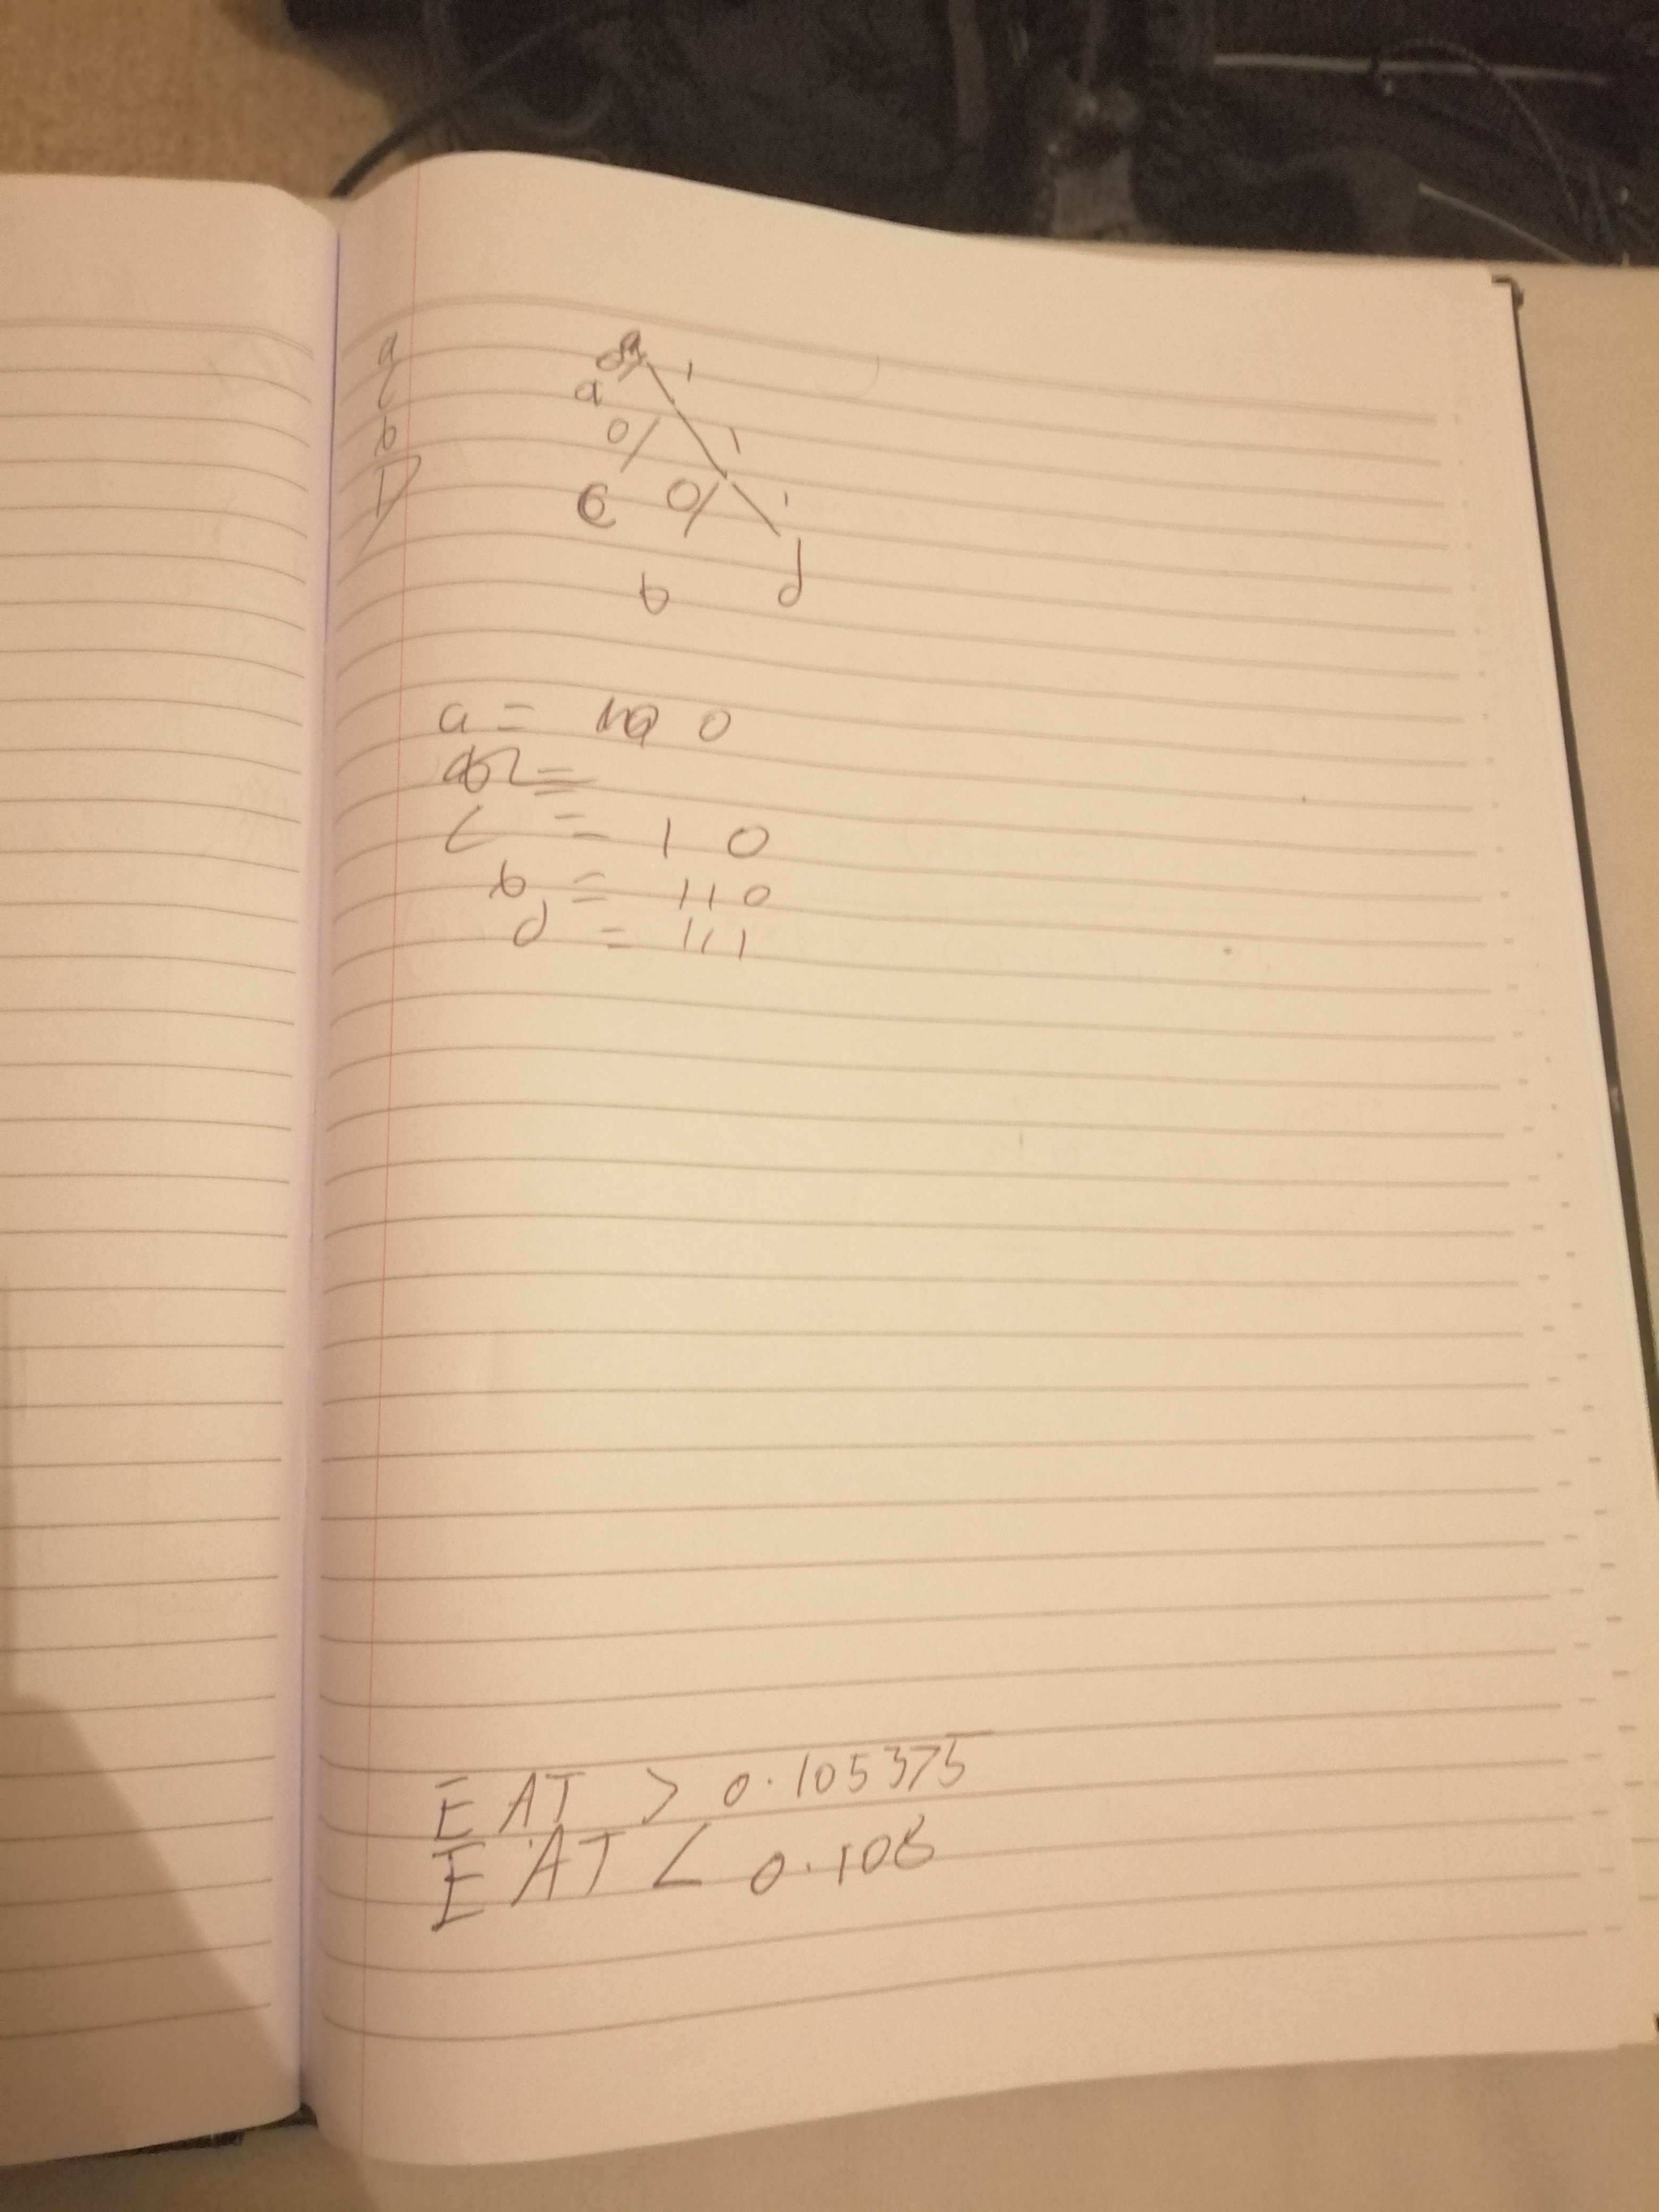 a
c
b
D
a
1
0
1
c
0
1
b
d
a = 0
c = 1 0
b = 110
d = 111
EAT > 0.105375
EAT < 0.108